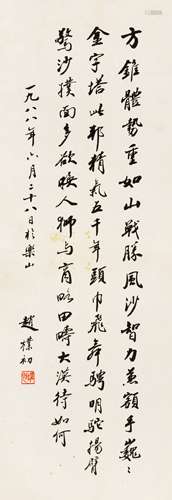 方錐體勢重如山戰勝風沙智力兼額手巍〻
金字塔此邦精氣五千年頭巾飛舞騁明駝揚臂
驚沙撲面多欲喚人獅與商略田疇大漠待如何
一九八八年六月二十八日於樂山
趙樸初